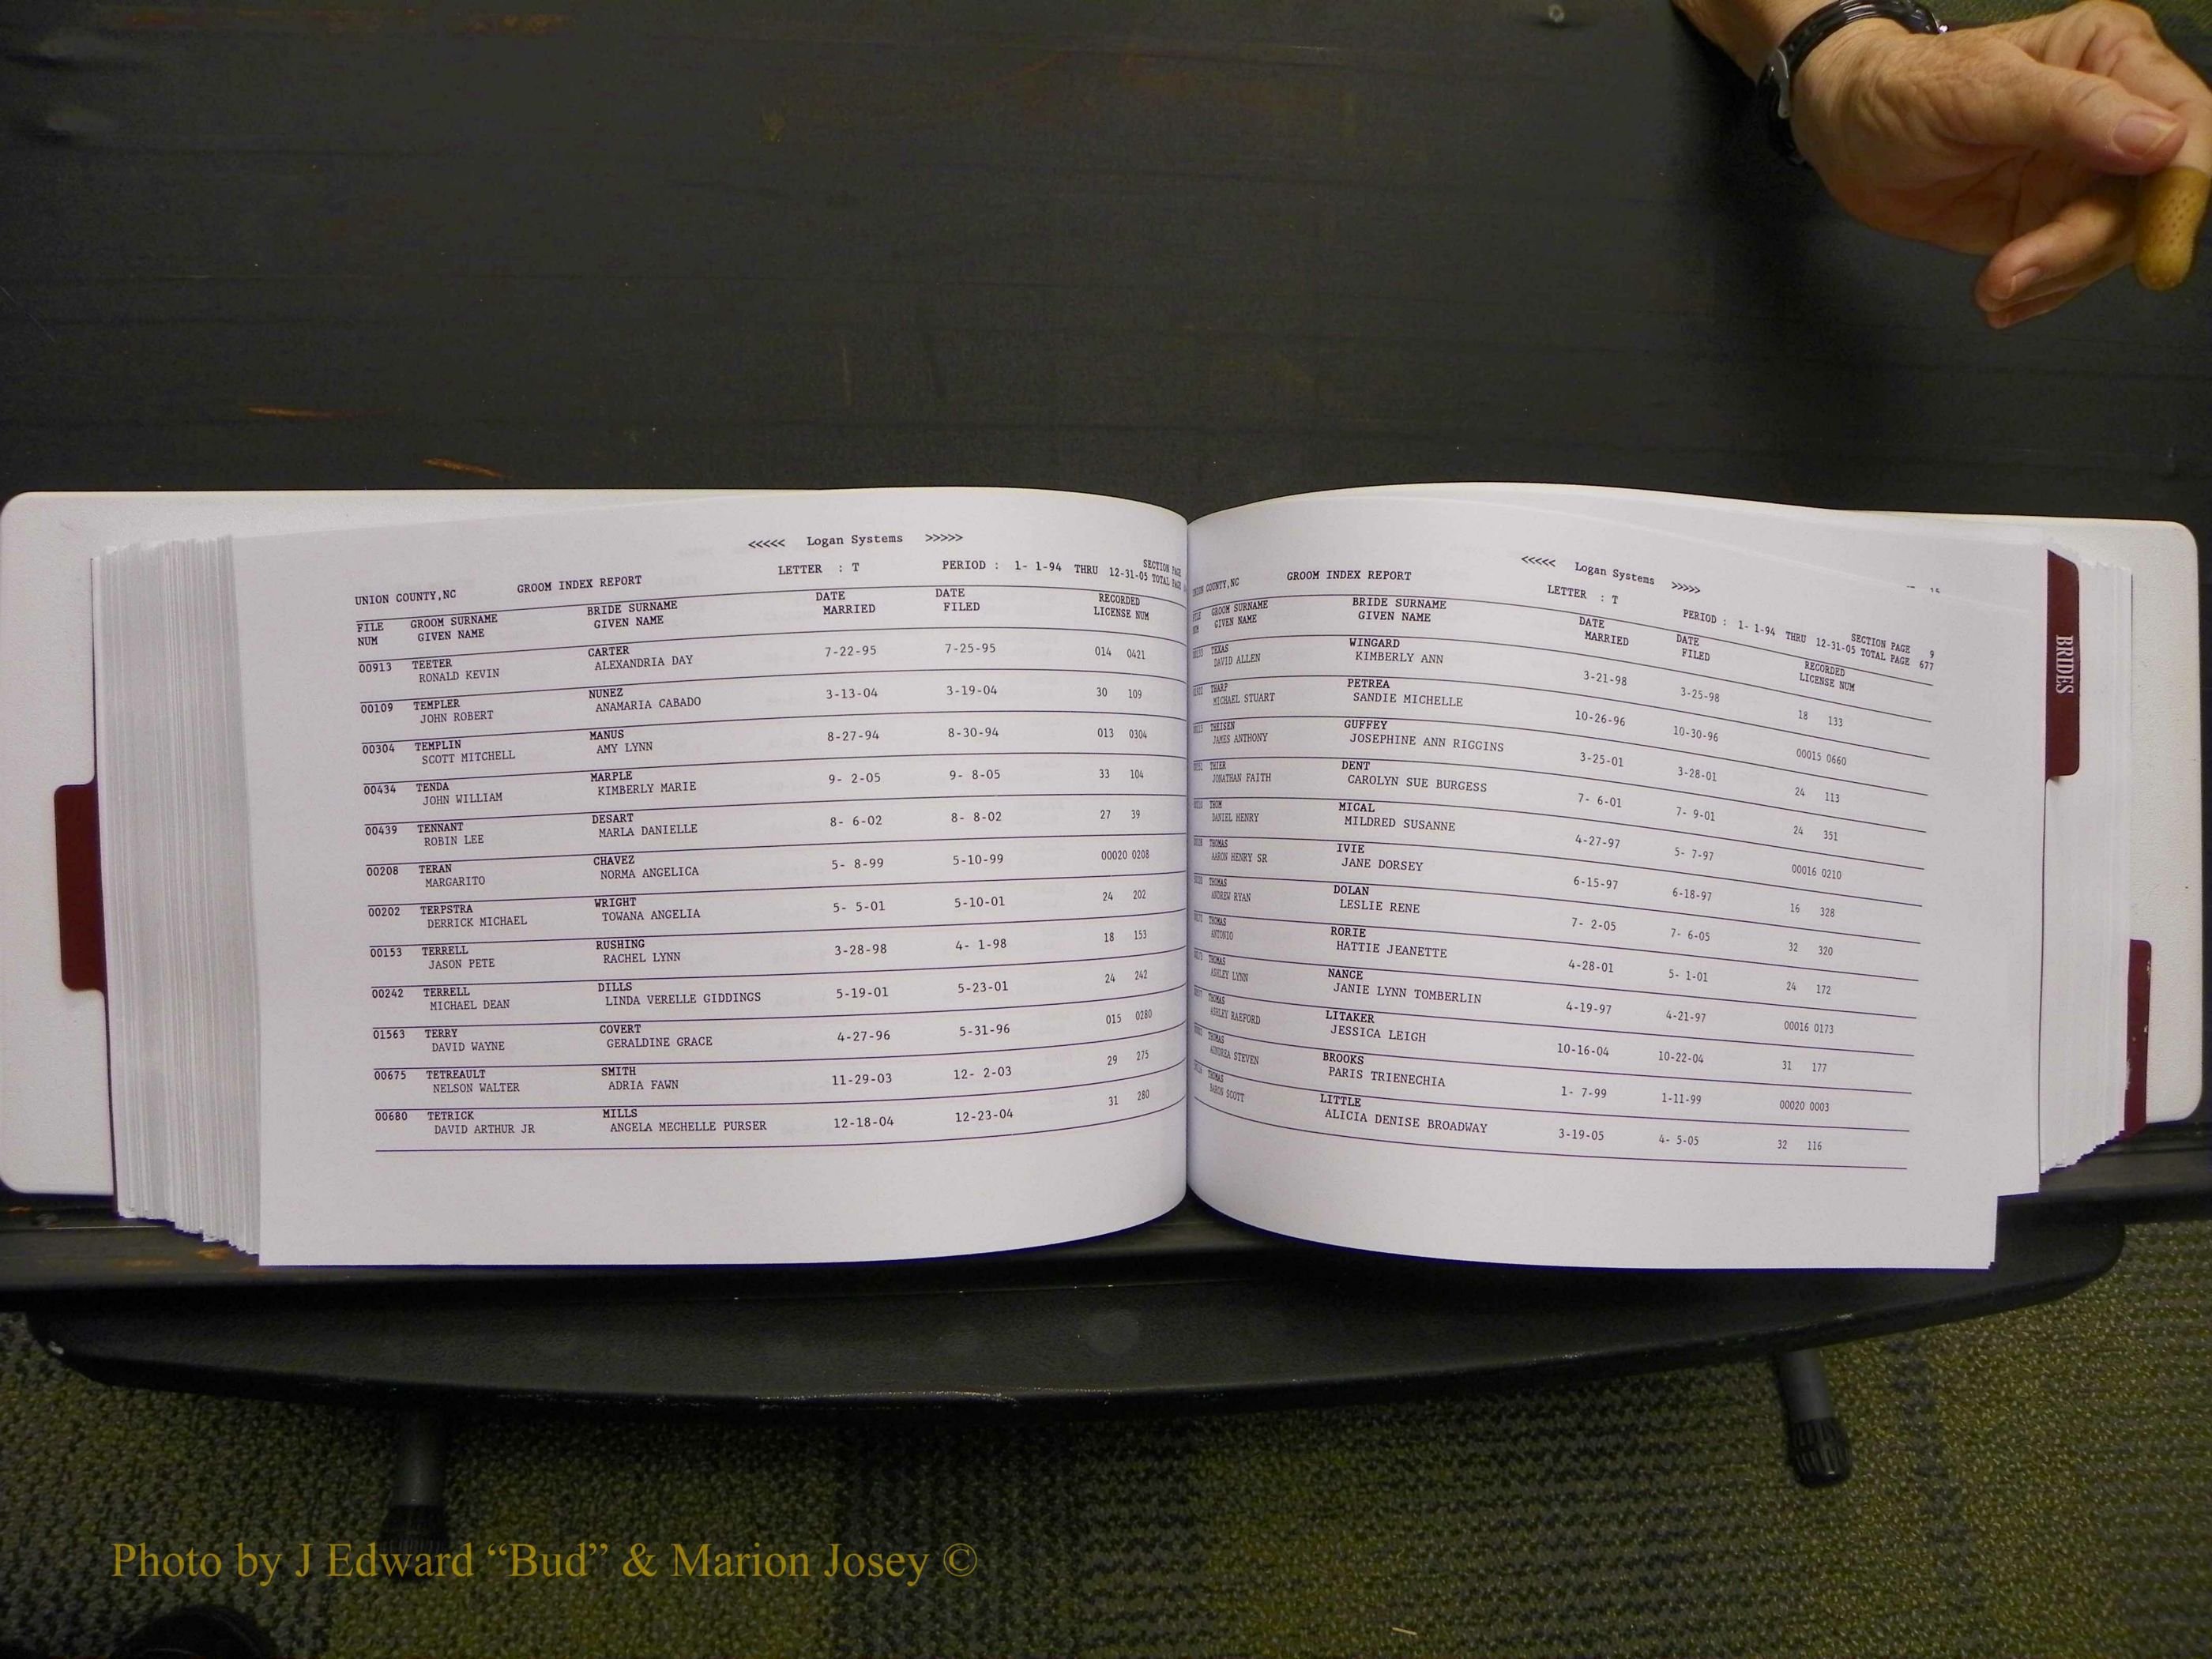 <<<<< Logan Systems >>>>>
UNION COUNTY,NC GROOM INDEX REPORT LETTER : T PERIOD : 1- 1-94 THRU 12-31-05 SECTION PAGE
TOTAL PAGE
FILE GROOM SURNAME BRIDE SURNAME DATE DATE RECORDED
NUM GIVEN NAME GIVEN NAME MARRIED FILED LICENSE NUM
00913 TEETER CARTER 7-22-95 7-25-95 014 0421
RONALD KEVIN ALEXANDRIA DAY
00109 TEMPLER NUNEZ 3-13-04 3-19-04 30 109
JOHN ROBERT ANAMARIA CABADO
00304 TEMPLIN MANUS 8-27-94 8-30-94 013 0304
SCOTT MITCHELL AMY LYNN
00434 TENDA MARPLE 9- 2-05 9- 8-05 33 104
JOHN WILLIAM KIMBERLY MARIE
00439 TENNANT DESART 8- 6-02 8- 8-02 27 39
ROBIN LEE MARLA DANIELLE
00208 TERAN CHAVEZ 5- 8-99 5-10-99 00020 0208
MARGARITO NORMA ANGELICA
00202 TERPSTRA WRIGHT 5- 5-01 5-10-01 24 202
DERRICK MICHAEL TOWANA ANGELIA
00153 TERRELL RUSHING 3-28-98 4- 1-98 18 153
JASON PETE RACHEL LYNN
00242 TERRELL DILLS 5-19-01 5-23-01 24 242
MICHAEL DEAN LINDA VERELLE GIDDINGS
01563 TERRY COVERT 4-27-96 5-31-96 015 0280
DAVID WAYNE GERALDINE GRACE
00675 TETREAULT SMITH 11-29-03 12- 2-03 29 275
NELSON WALTER ADRIA FAWN
00680 TETRICK MILLS 12-18-04 12-23-04 31 280
DAVID ARTHUR JR ANGELA MECHELLE PURSER
<<<<< Logan Systems >>>>>
UNION COUNTY,NC GROOM INDEX REPORT LETTER : T PERIOD : 1- 1-94 THRU 12-31-05 SECTION PAGE 9
TOTAL PAGE 677
FILE GROOM SURNAME BRIDE SURNAME DATE DATE RECORDED
NUM GIVEN NAME GIVEN NAME MARRIED FILED LICENSE NUM
TEXAS WINGARD 3-21-98 3-25-98 18 133
DAVID ALLEN KIMBERLY ANN
THARP PETREA 10-26-96 10-30-96 00015 0660
MICHAEL STUART SANDIE MICHELLE
THEISEN GUFFEY 3-25-01 3-28-01 24 113
JAMES ANTHONY JOSEPHINE ANN RIGGINS
THIER DENT 7- 6-01 7- 9-01 24 351
JONATHAN FAITH CAROLYN SUE BURGESS
THOM MICAL 4-27-97 5- 7-97 00016 0210
DANIEL HENRY MILDRED SUSANNE
THOMAS IVIE 6-15-97 6-18-97 16 328
AARON HENRY SR JANE DORSEY
THOMAS DOLAN 7- 2-05 7- 6-05 32 320
ANDREW RYAN LESLIE RENE
THOMAS RORIE 4-28-01 5- 1-01 24 172
ANTONIO HATTIE JEANETTE
THOMAS NANCE 4-19-97 4-21-97 00016 0173
ASHLEY LYNN JANIE LYNN TOMBERLIN
THOMAS LITAKER 10-16-04 10-22-04 31 177
ASHLEY RAEFORD JESSICA LEIGH
THOMAS BROOKS 1- 7-99 1-11-99 00020 0003
STEVEN PARIS TRIENECHIA
THOMAS LITTLE 3-19-05 4- 5-05 32 116
BARON SCOTT ALICIA DENISE BROADWAY
BRIDES
Photo by J Edward “Bud” & Marion Josey ©